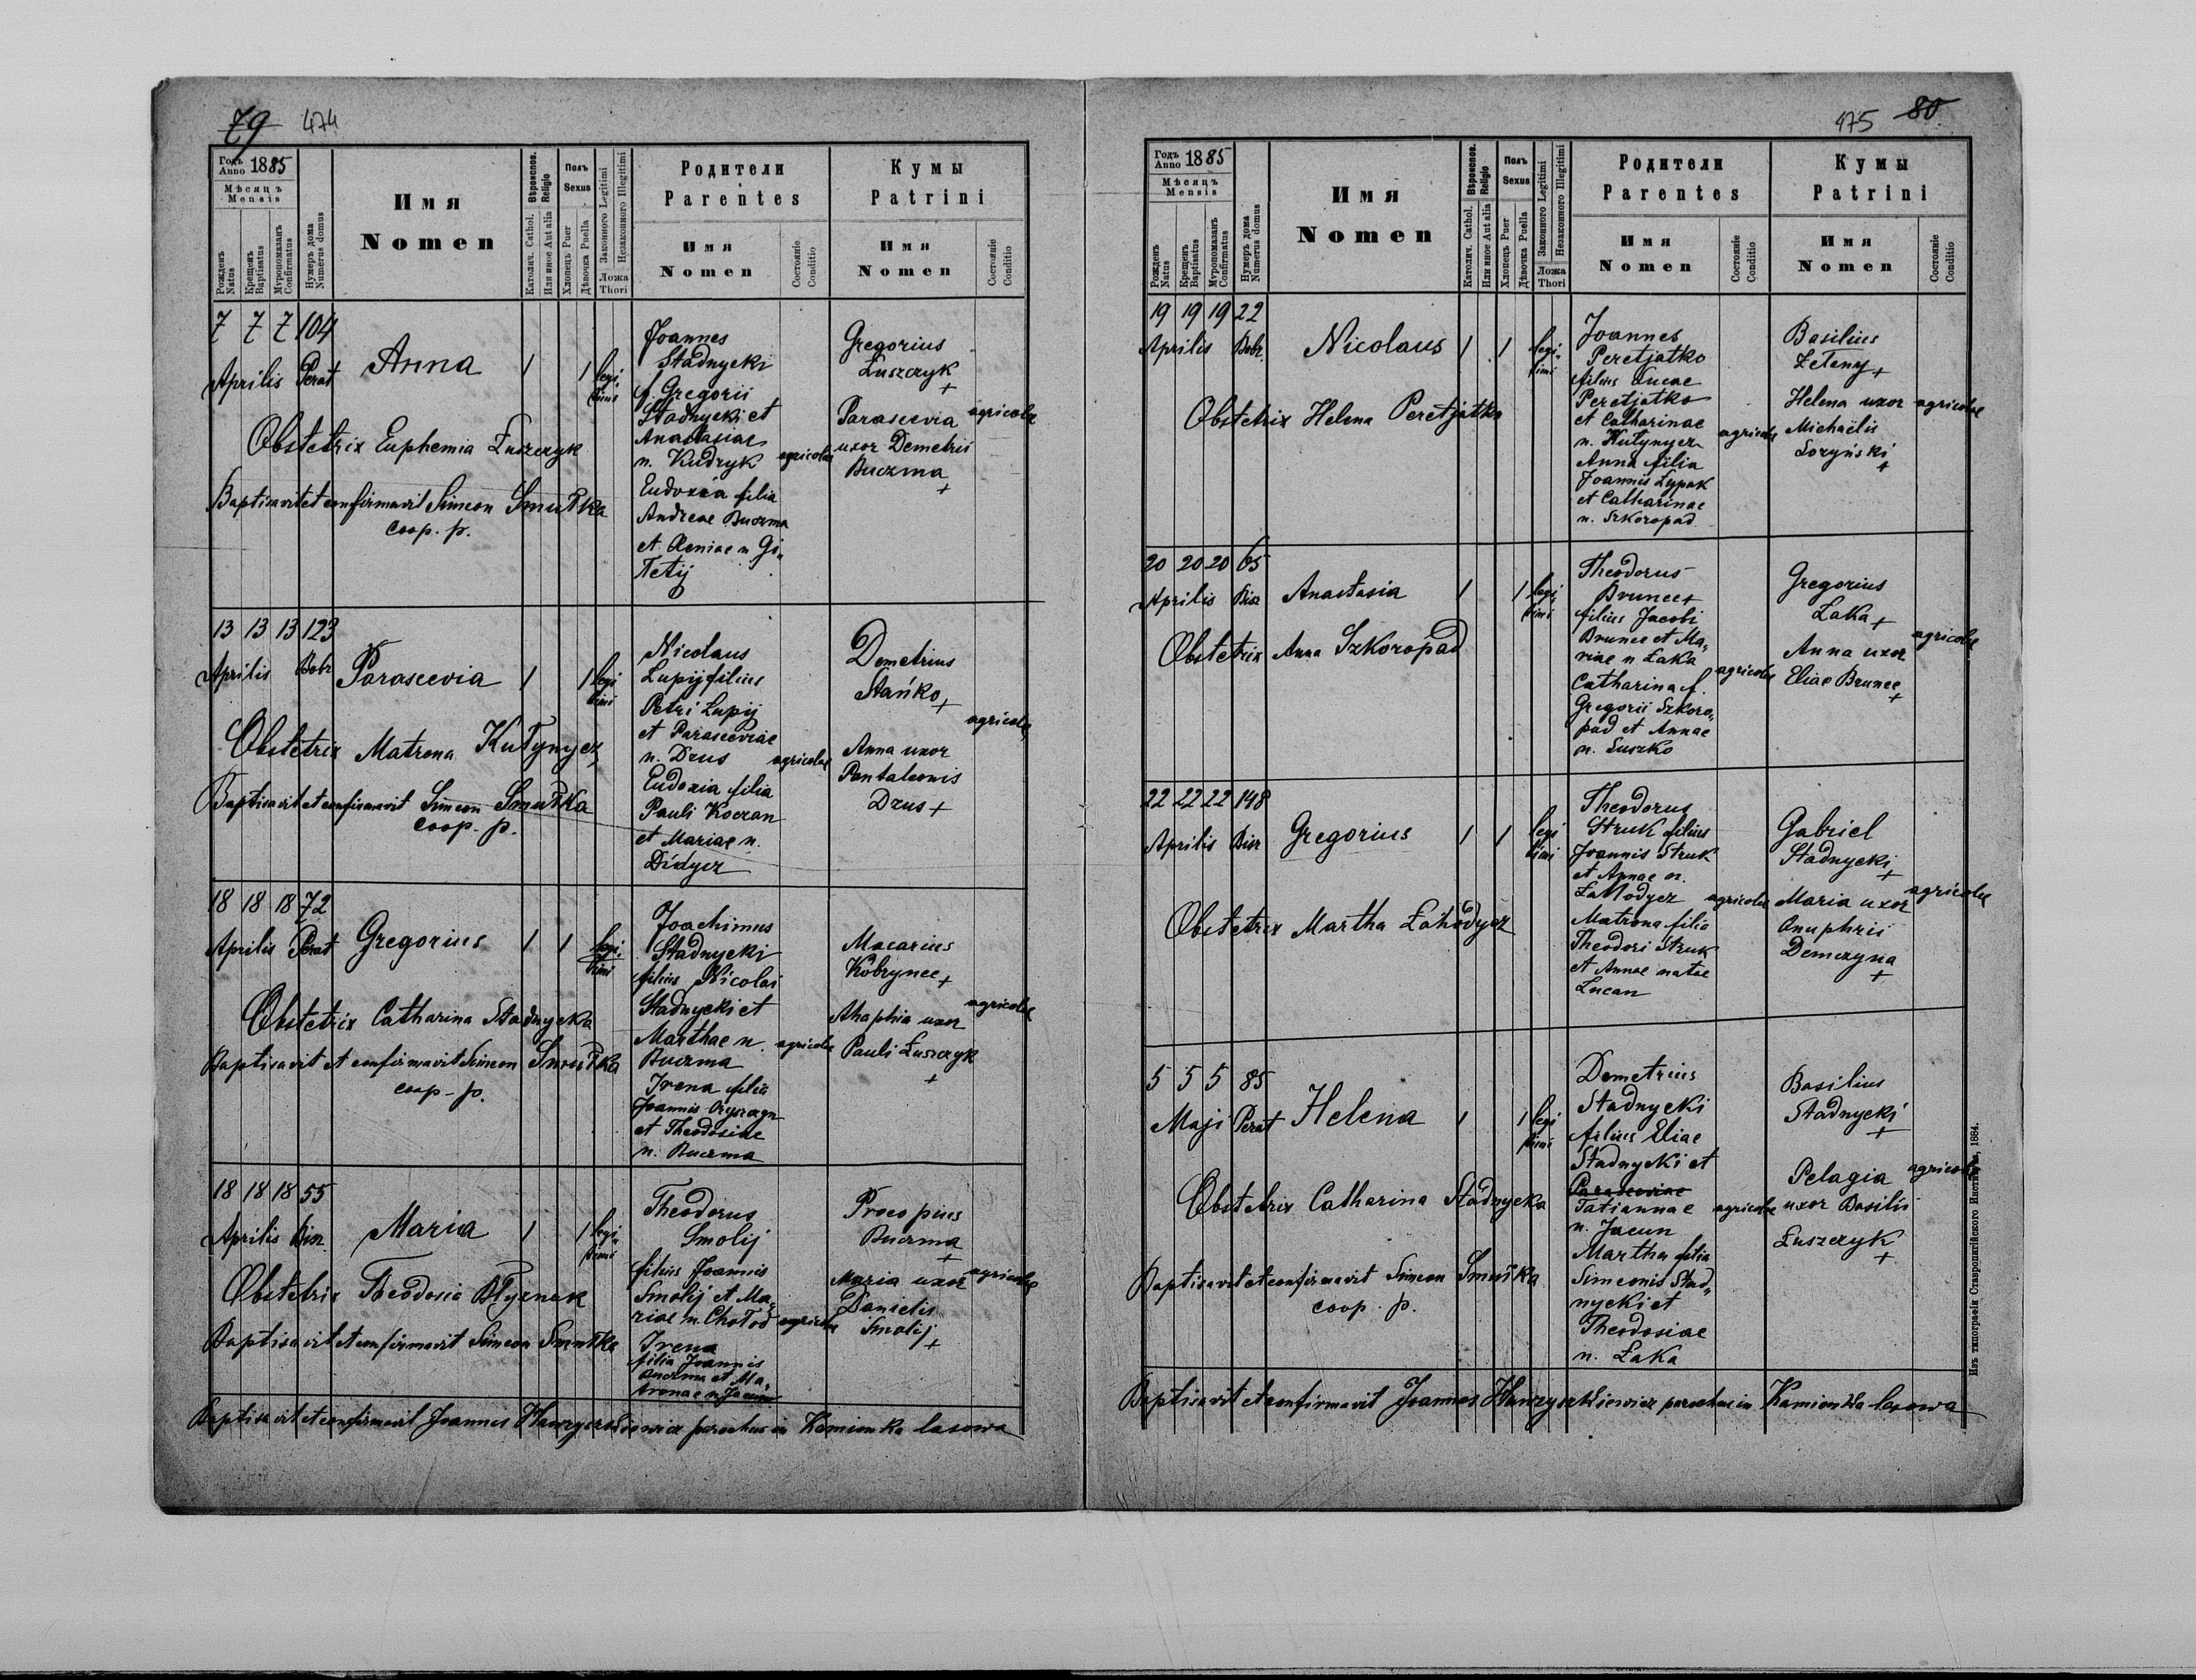 79 474
Годъ Anno 1885
Мѣсяцъ
Mensis
Рожденъ Natus
Крещенъ Baptisatus
Мѵропомазанъ Confirmatus
Нумеръ дома Numerus domus
Имя
Nomen
Вѣроиспов. Religio
Католич. Cathol.
Или иное Aut alia
Полъ
Sexus
Хлопець Puer
Дѣвочка Puella
Законного Legitimi
Незаконного Illegitimi
Ложа
Thori
Родители
Parentes
Имя
Nomen
Состояніе Conditio
Кумы
Patrini
Имя
Nomen
Состояніе Conditio
7 7 7 104
Aprilis Perat
Anna
1 1 legi-
timi
Obstetrix Euphemia Łuszczyk
Baptisavit et confirmavit Simeon Smułka
coop. p.
Joannes
Stadnycki
f. Gregorii
Stadnycki et
Anastasiae
n. Kudryk agricolae
Eudoxia filia
Andreae Buczma
et Xeniae n Gi-
letij
Gregorius
Łuszczyk
+
Parascevia agricolae
uxor Demetrii
Buczma
+
13 13 13 123
Aprilis Bobr
Parascevia
1 1 legi
timi
Obstetrix Matrona Kutynycz
Baptisavit et confirmavit Simeon Smułka
coop. p.
Nicolaus
Lupij filius
Petri Lupij
et Parasceviae
n. Dzus agricolae
Eudoxia filia
Pauli Koczan
et Mariae n.
Didycz
Demetrius
Stańko +
agricolae
Anna uxor
Pantaleonis
Dzus +
18 18 18 72
Aprilis Perat
Gregorius
1 1 legi
timi
Obstetrix Catharina Stadnycka
Baptisavit et confirmavit Simeon Smułka
coop. p.
Joachimus
Stadnycki
filius Nicolai
Stadnycki et
Marthae n. agricolae
Buczma
Irena filia
Joannis
et Theodosiae
n. Buczma
Macarius
Kobrynec +
agricolae
Ahaphia uxor
Pauli Łuszczyk
+
18 18 18 55
Aprilis Bisz.
Maria
1 1 legi-
timi
Obstetrix Theodosia
Baptisavit et confirmavit Simeon Smułka
Theodorus
Smolij
filius Joannis
Smolij et Ma-
riae n. Chołod agricolae
Irena
filia Joannis
Buczma et Ma-
tronae n Jacun
Procopius
Buczma
+
Maria uxor agricolae
Danielis
Smolij
+
Baptisavit et confirmavit Joannes Hawryszkiewicz parochus in Kamionka lasowa
475 80
Годъ Anno 1885
Мѣсяцъ
Mensis
Рожденъ Natus
Крещенъ Baptisatus
Мѵропомазанъ Confirmatus
Нумеръ дома Numerus domus
Имя
Nomen
Вѣроиспов. Religio
Католич. Cathol.
Или иное Aut alia
Полъ
Sexus
Хлопець Puer
Дѣвочка Puella
Законного Legitimi
Незаконного Illegitimi
Ложа
Thori
Родители
Parentes
Имя
Nomen
Состояніе Conditio
Кумы
Patrini
Имя
Nomen
Состояніе Conditio
19 19 19 22
Aprilis Bobr.
Nicolaus
1 1 legi-
timi
Obstetrix Helena Peretjatko
Joannes
Peretjatko
filius Lucae
Peretjatko
et Catharinae
n. Kutynycz agricolae
Anna filia
Joannis Lypak
et Catharinae
n. Szkoropad
Basilius
Zeleny +
Helena uxor agricolae
Michaelis
Łozyński
+
20 20 20 65
Aprilis Bisz
Anastasia
1 1 legi
timi
Obstetrix Anna Szkoropad
Theodorus
Brunec
filius Jacobi
Brunec et Ma-
riae n Łaka
Catharina f. agricolae
Gregorii Szkoro-
pad et Annae
n. Łuszko
Gregorius
Łaka +
agricolae
Anna uxor
Eliae Brunec
+
22 22 22 148
Aprilis Bisz
Gregorius
1 1 legi
timi
Obstetrix Martha Łahodycz
Theodorus
Struk filius
Joannis Struk
et Annae n.
Łahodycz agricolae
Matrona filia
Theodori Struk
et Annae natae
Łucan
Gabriel
Stadnycki
+
Maria uxor agricolae
Onuphrii
Demczyna
+
5 5 5 85
Maji Perat
Helena
1 1 legi
timi
Obstetrix Catharina Stadnycka
Baptisavit et confirmavit Simeon Smułka
coop. p.
Demetrius
Stadnycki
filius Eliae
Stadnycki et
Parasceviae
Tatiannae agricolae
n. Jacun
Martha filia
Simeonis Stad-
nycki et
Theodosiae
n. Łaka
Basilius
Stadnycki
+
Pelagia agricolae
uxor Basilii
Łuszczyk
+
Baptisavit et confirmavit Joannes Hawryszkiewicz parochus in Kamionka lasowa
Изъ типографіи Ставропигійского Института, 1884.